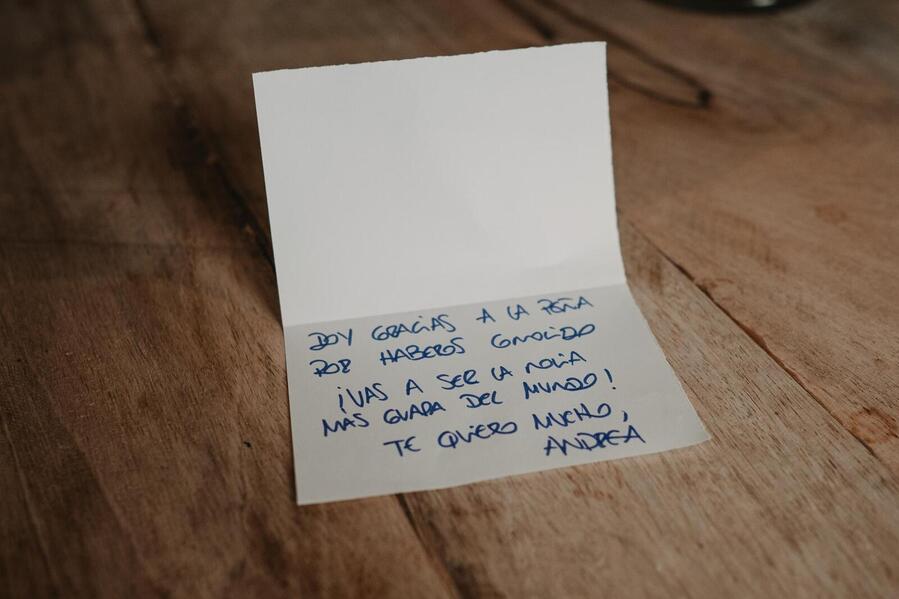 DOY GRACIAS A LA PEÑA
POR HABEROS CONOCIDO
¡VAS A SER LA NOVIA
MAS GUAPA DEL MUNDO!
TE QUIERO MUCHO,
ANDREA